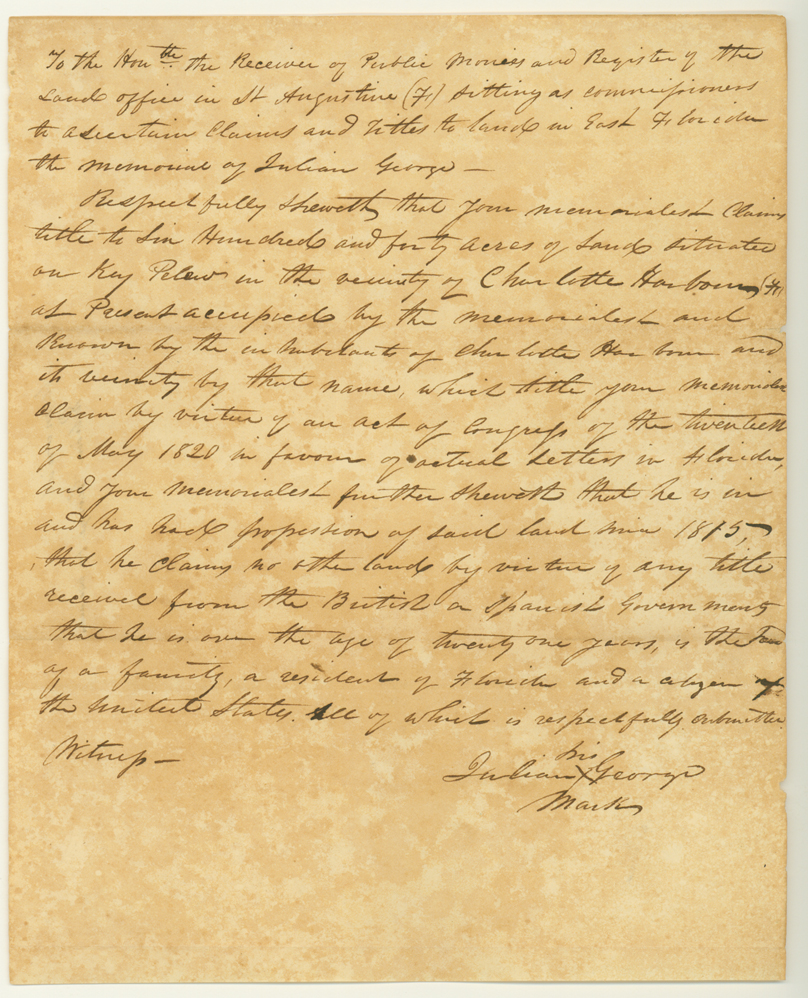 To the Honble. the Receiver of Public Monies and Register of the
Land office in St Augustine (Fl) sitting as commissioners
to ascertain Claims and Titles to land in East Florida
the memorial of Julian George —
Respectfully Sheweth that your memorialest Claims
title to Six Hundred and forty acres of Land situated
on Key Pelew in the vicinity of Charlotte Harbour, (Fl)
at Present accupied by the memorialest and
Known by the inhabitants of Charlotte Harbour and
its vicinity by that name, which title your memorialest
Claim by virtue of an act of Congress of the twentieth
of May 1820 in favour of actual Setters in Florida,
and your memorialest further Sheweth that he is in
and has had possession of said land since 1815,
that he claims no other land by virtue of any title
received from the British or Spanish Governments
that he is over the age of twenty one years, is the
of a family, a resident of Florida and a citizen of
the United States. All of which is respectfully submitted
Witness —
his
Julian X George
Mark